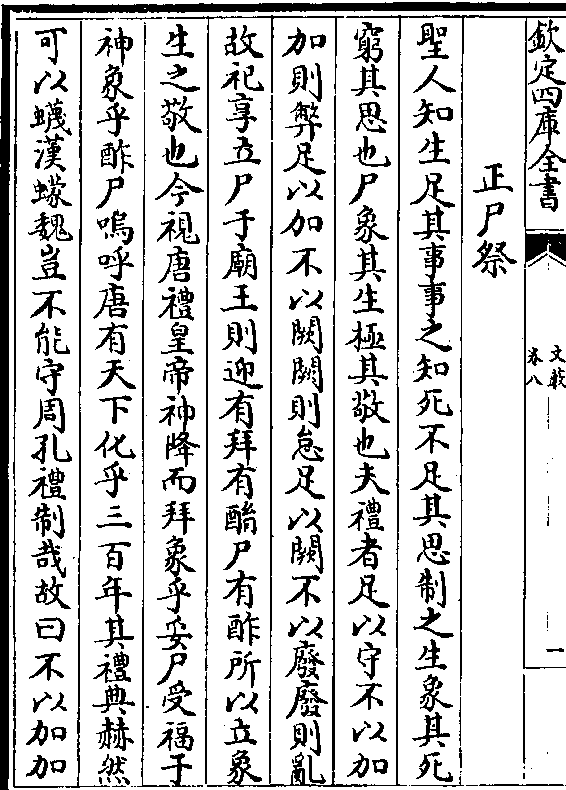 欽定四庫全書
文藪
卷八
一
正尸祭
聖人知生足其事事之知死不足其思制之生象其死
窮其思也尸象其生極其敬也夫禮者足以守不以加
加則弊足以加不以闕闕則怠足以闕不以廢廢則亂
故祀享立尸于廟王則迎有拜有酳尸有酢所以立象
生之敬也今視唐禮皇帝神降而拜象乎妥尸受福于
神象乎酢尸嗚呼唐有天下化乎三百年其禮典赫然
可以蠛漢蠓魏豈不能守周孔禮制哉故曰不以加加